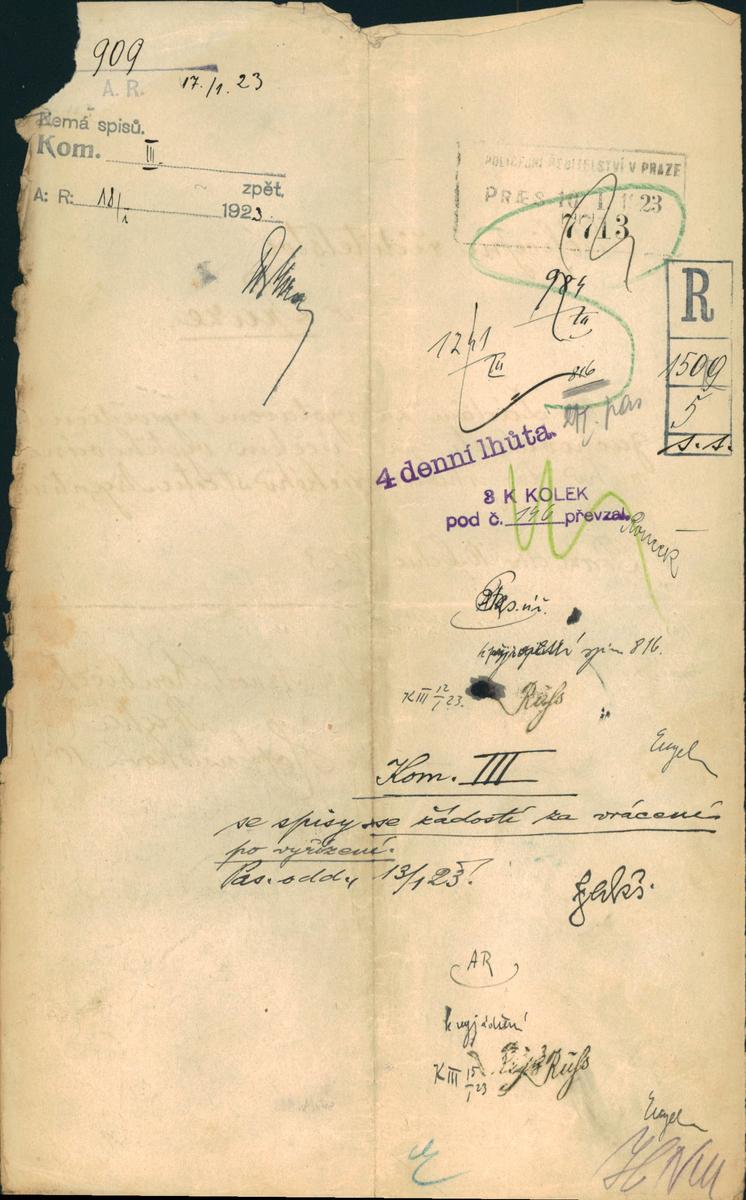 909
A. R. 17./1. 23
Nemá spisů.
Kom. III.
zpět.
A: R: 18/I 1923.
POLICEJNÍ ŘEDITELSTVÍ V PRAZE
PRÆS 10 I 1923
7713
R
1509
5
s. s.
984/III
1241/III
816
4 denní lhůta.
8 K KOLEK
pod č. 146 převzal
spis 816.
K III 12/I 23. Rüss
Engel
Kom. III
se spisy se žádostí za vrácení
po vyřízení.
Pas. odd. 13/1 23.
AR
k vyjádření
K III 15/I 23 Rüss
Engel